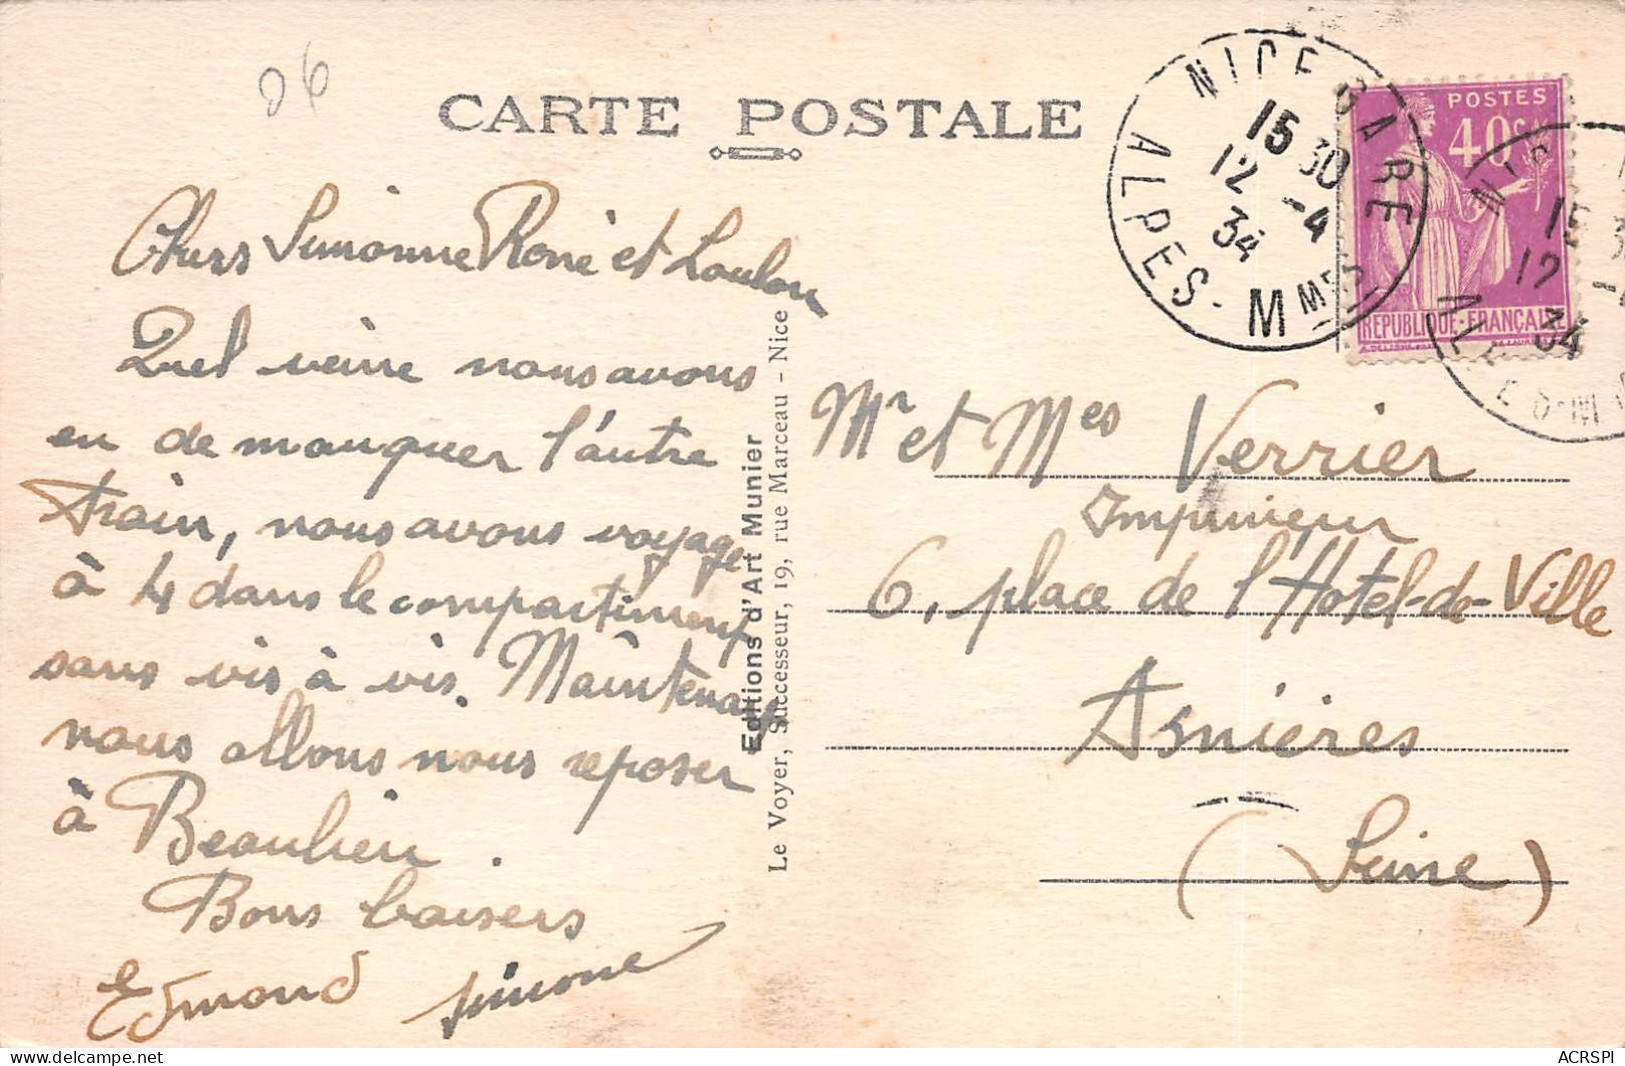 06
CARTE POSTALE
NICE GARE
15 30
12 -4
34
ALPES-MMES
POSTES
40 C.
REPUBLIQUE-FRANÇAISE
15 3
12 -4
34
Chers Simonne René et Loulou
Quel veine nous avons
eu de manquer l'autre
train, nous avons voyagé
à 4 dans le compartiment
sans vis à vis. Maintenant
nous allons nous reposer
à Beaulieu.
Bons baisers
Edmond Simone
Editions d'Art Munier
Le Voyer, Successeur, 19, rue Marceau - Nice
Mr et Mes Verrier
Imprimeur
6, place de l'Hotel-de-Ville
Asnières
(Seine)
ACRSPI